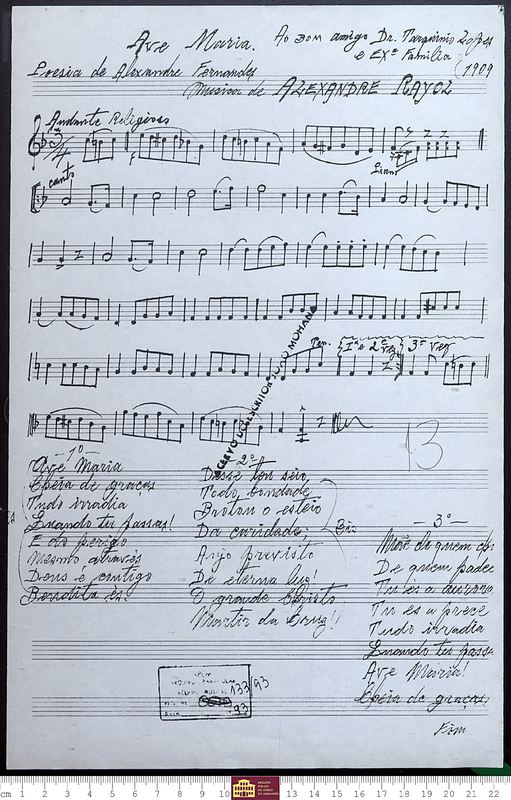 Ave Maria.
Ao Bom amigo Dr. Tarquinio Lopes
e Exª Familia
(1909
Poesia de Alexandre Fernandes
Musica de ALEXANDRE RAYOL
Andante Religioso
3/4
canto
Piano
Ten.
1ª e 2ª vez
3ª vez
ACERVO DO ESCRITOR JOÃO MOHANA
13
1º
Ave Maria
Cheia de graças
Tudo irradia
Quando tu passas!
E do perigo
Mesmo através
Deus é comtigo
Bendita és.
2º
Desse teu seio
Todo bondade
Brotou o esteio
Da caridade,
Anjo previsto
De eterna luz!
O grande Christo
Martir da Cruz!!
Bis
— 3º —
Mãe de quem
De quem padec
Tu és a aurora
Tu és a prece
Tudo irradia
Quando tu passa
Ave Maria!
Cheia de graças
Fim
APEM
133/93
93
cm 1 2 3 4 5 6 7 8 9 10 13 14 15 16 17 18 19 20 21 22
ARQUIVO PÚBLICO DO ESTADO DO MARANHÃO